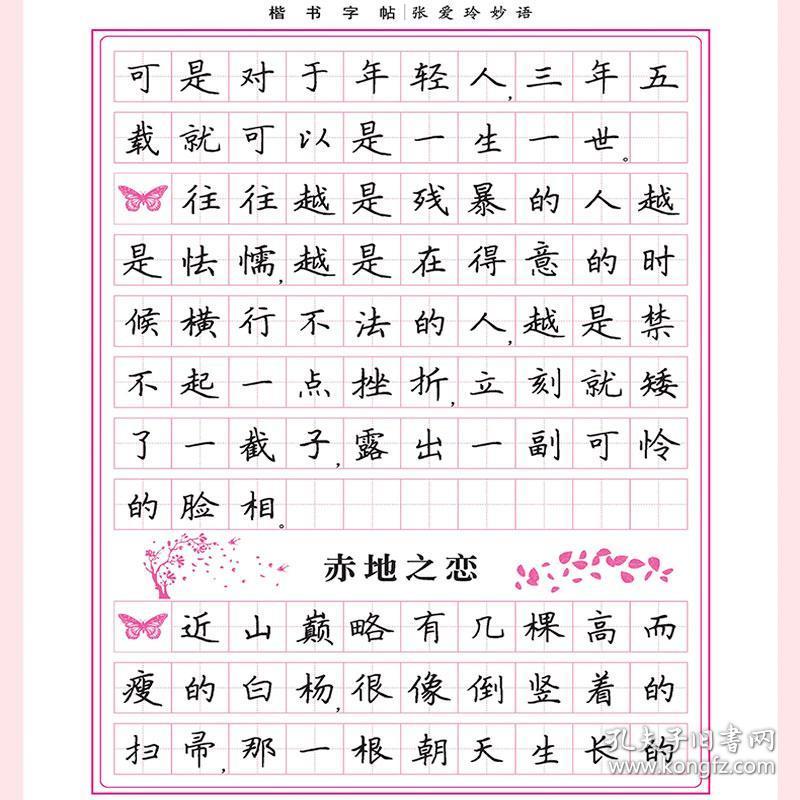 楷书字帖|张爱玲妙语
可是对于年轻人,三年五
载就可以是一生一世。
往往越是残暴的人越
是怯懦,越是在得意的时
候横行不法的人,越是禁
不起一点挫折,立刻就矮
了一截子,露出一副可怜
的脸相。
赤地之恋
近山巅略有几棵高而
瘦的白杨,很像倒竖着的
扫帚,那一根朝天生长的
孔夫子旧书网
www.kongfz.com